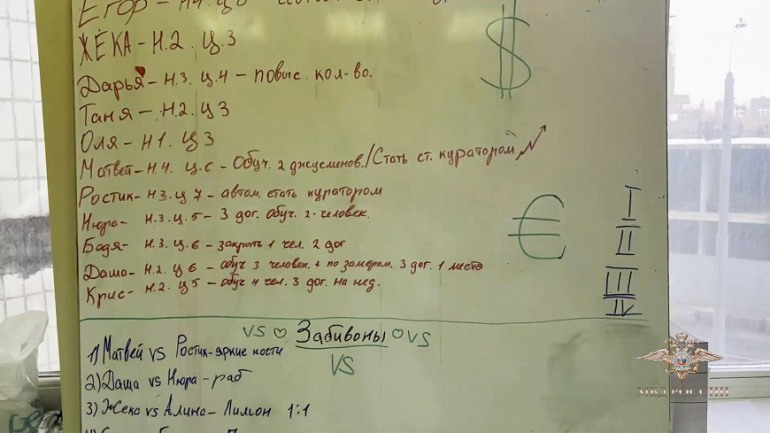 Егор - Н.4. Ц.6
ЖЁКА - Н.2. Ц.3
Дарья - Н.3. Ц.4 - повыс. кол-во.
Таня - Н.2. Ц3
Оля - Н1. Ц3
Матвет - Н.4. Ц.6 - Обуч. 2 джусменов./Стать ст. куратором
Ростик - Н3. Ц7 - автом. стать куратором
Нюра - Н.3. Ц.5 - 3 дог. обуч. 2-человек.
Бодя - Н.3. Ц.6 - закрыть 1 чел. 2 дог
Даша - Н.2. Ц6 - обуч 3 человек. + по замерам. 3 дог. 1 место
Крис - Н.2. Ц5 - обуч 4 чел. 3 дог. на нед.
$
€
I
II
III
IV
vs Забивоны vs
VS
1) Матвей vs Ростик - яркие кости
2) Даша vs Нюра - раб
3) Жека vs Алина - Лимон 1:1
МВД РОССИИ